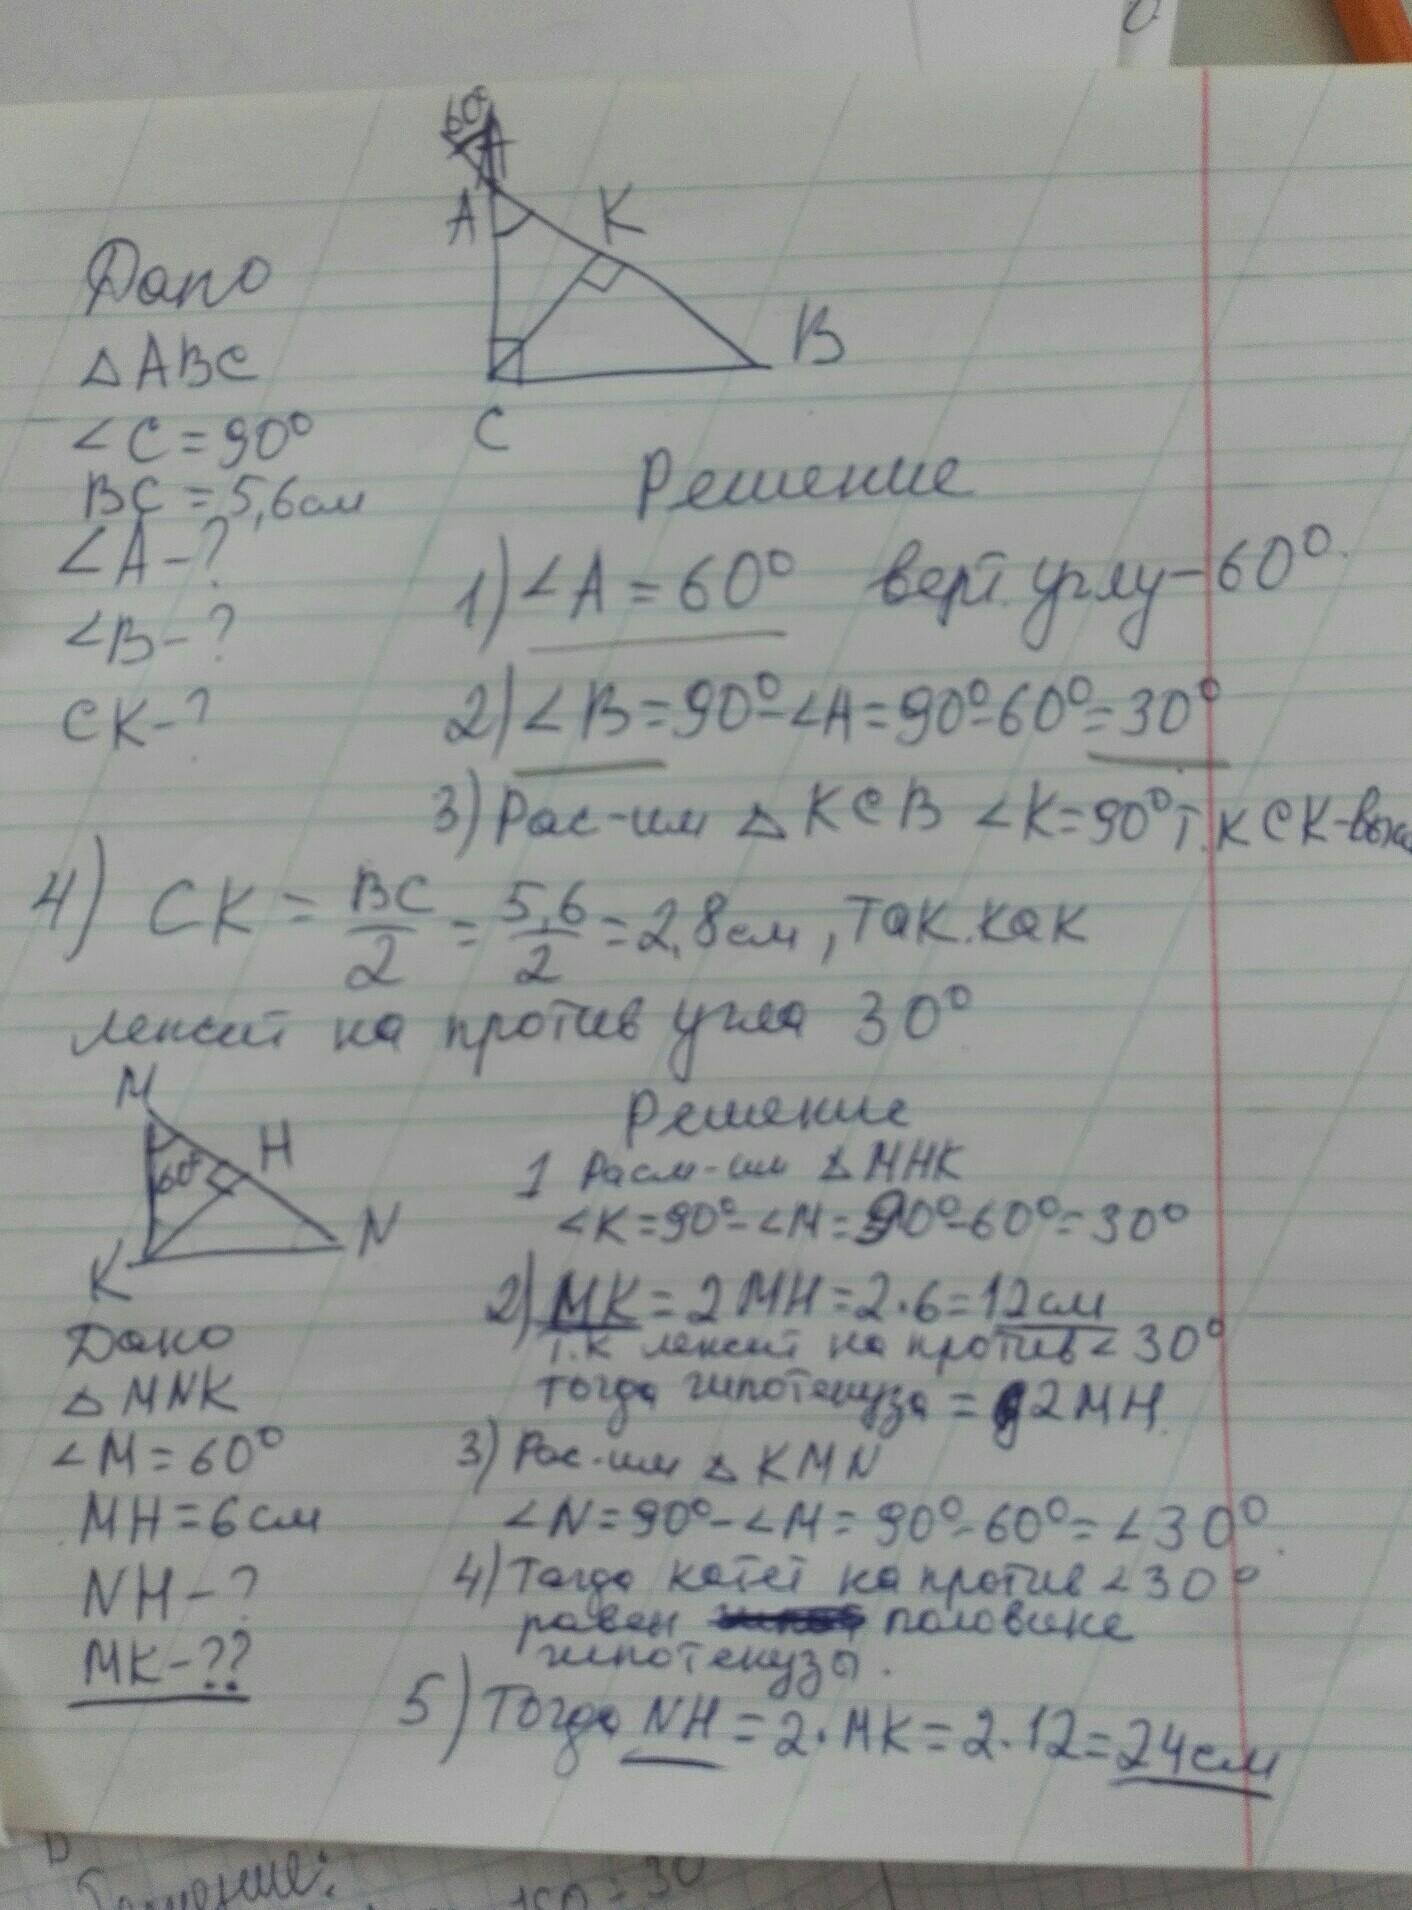 60°
A
K
B
C
Дано
△ABC
∠C=90°
BC=5,6см
∠A-?
∠B-?
CK-?
Решение
1) ∠A=60° верт. углу-60°.
2) ∠B=90°-∠A=90°-60°=30°
3) Рас-им △KCB ∠K=90° т.к CK-выс
4) CK = BC/2 = 5,6/2 = 2,8см, так.как
лежит на против угла 30°
M
60°
H
K
N
Дано
△MNK
∠M=60°
MH=6см
NH-?
MK-??
Решение
1 Расм-им △MHK
∠K=90°-∠M=90°-60°=30°
2) MK=2MH=2·6=12см
т.к лежит на против∠30°
тогда гипотенуза = 2MH.
3) Рас-им △KMN
∠N=90°-∠M=90°-60°=∠30°.
4) Тогда катет на против ∠30°
равен половине
гипотенузы.
5) Тогда NH=2·MK=2·12=24см
Решение: